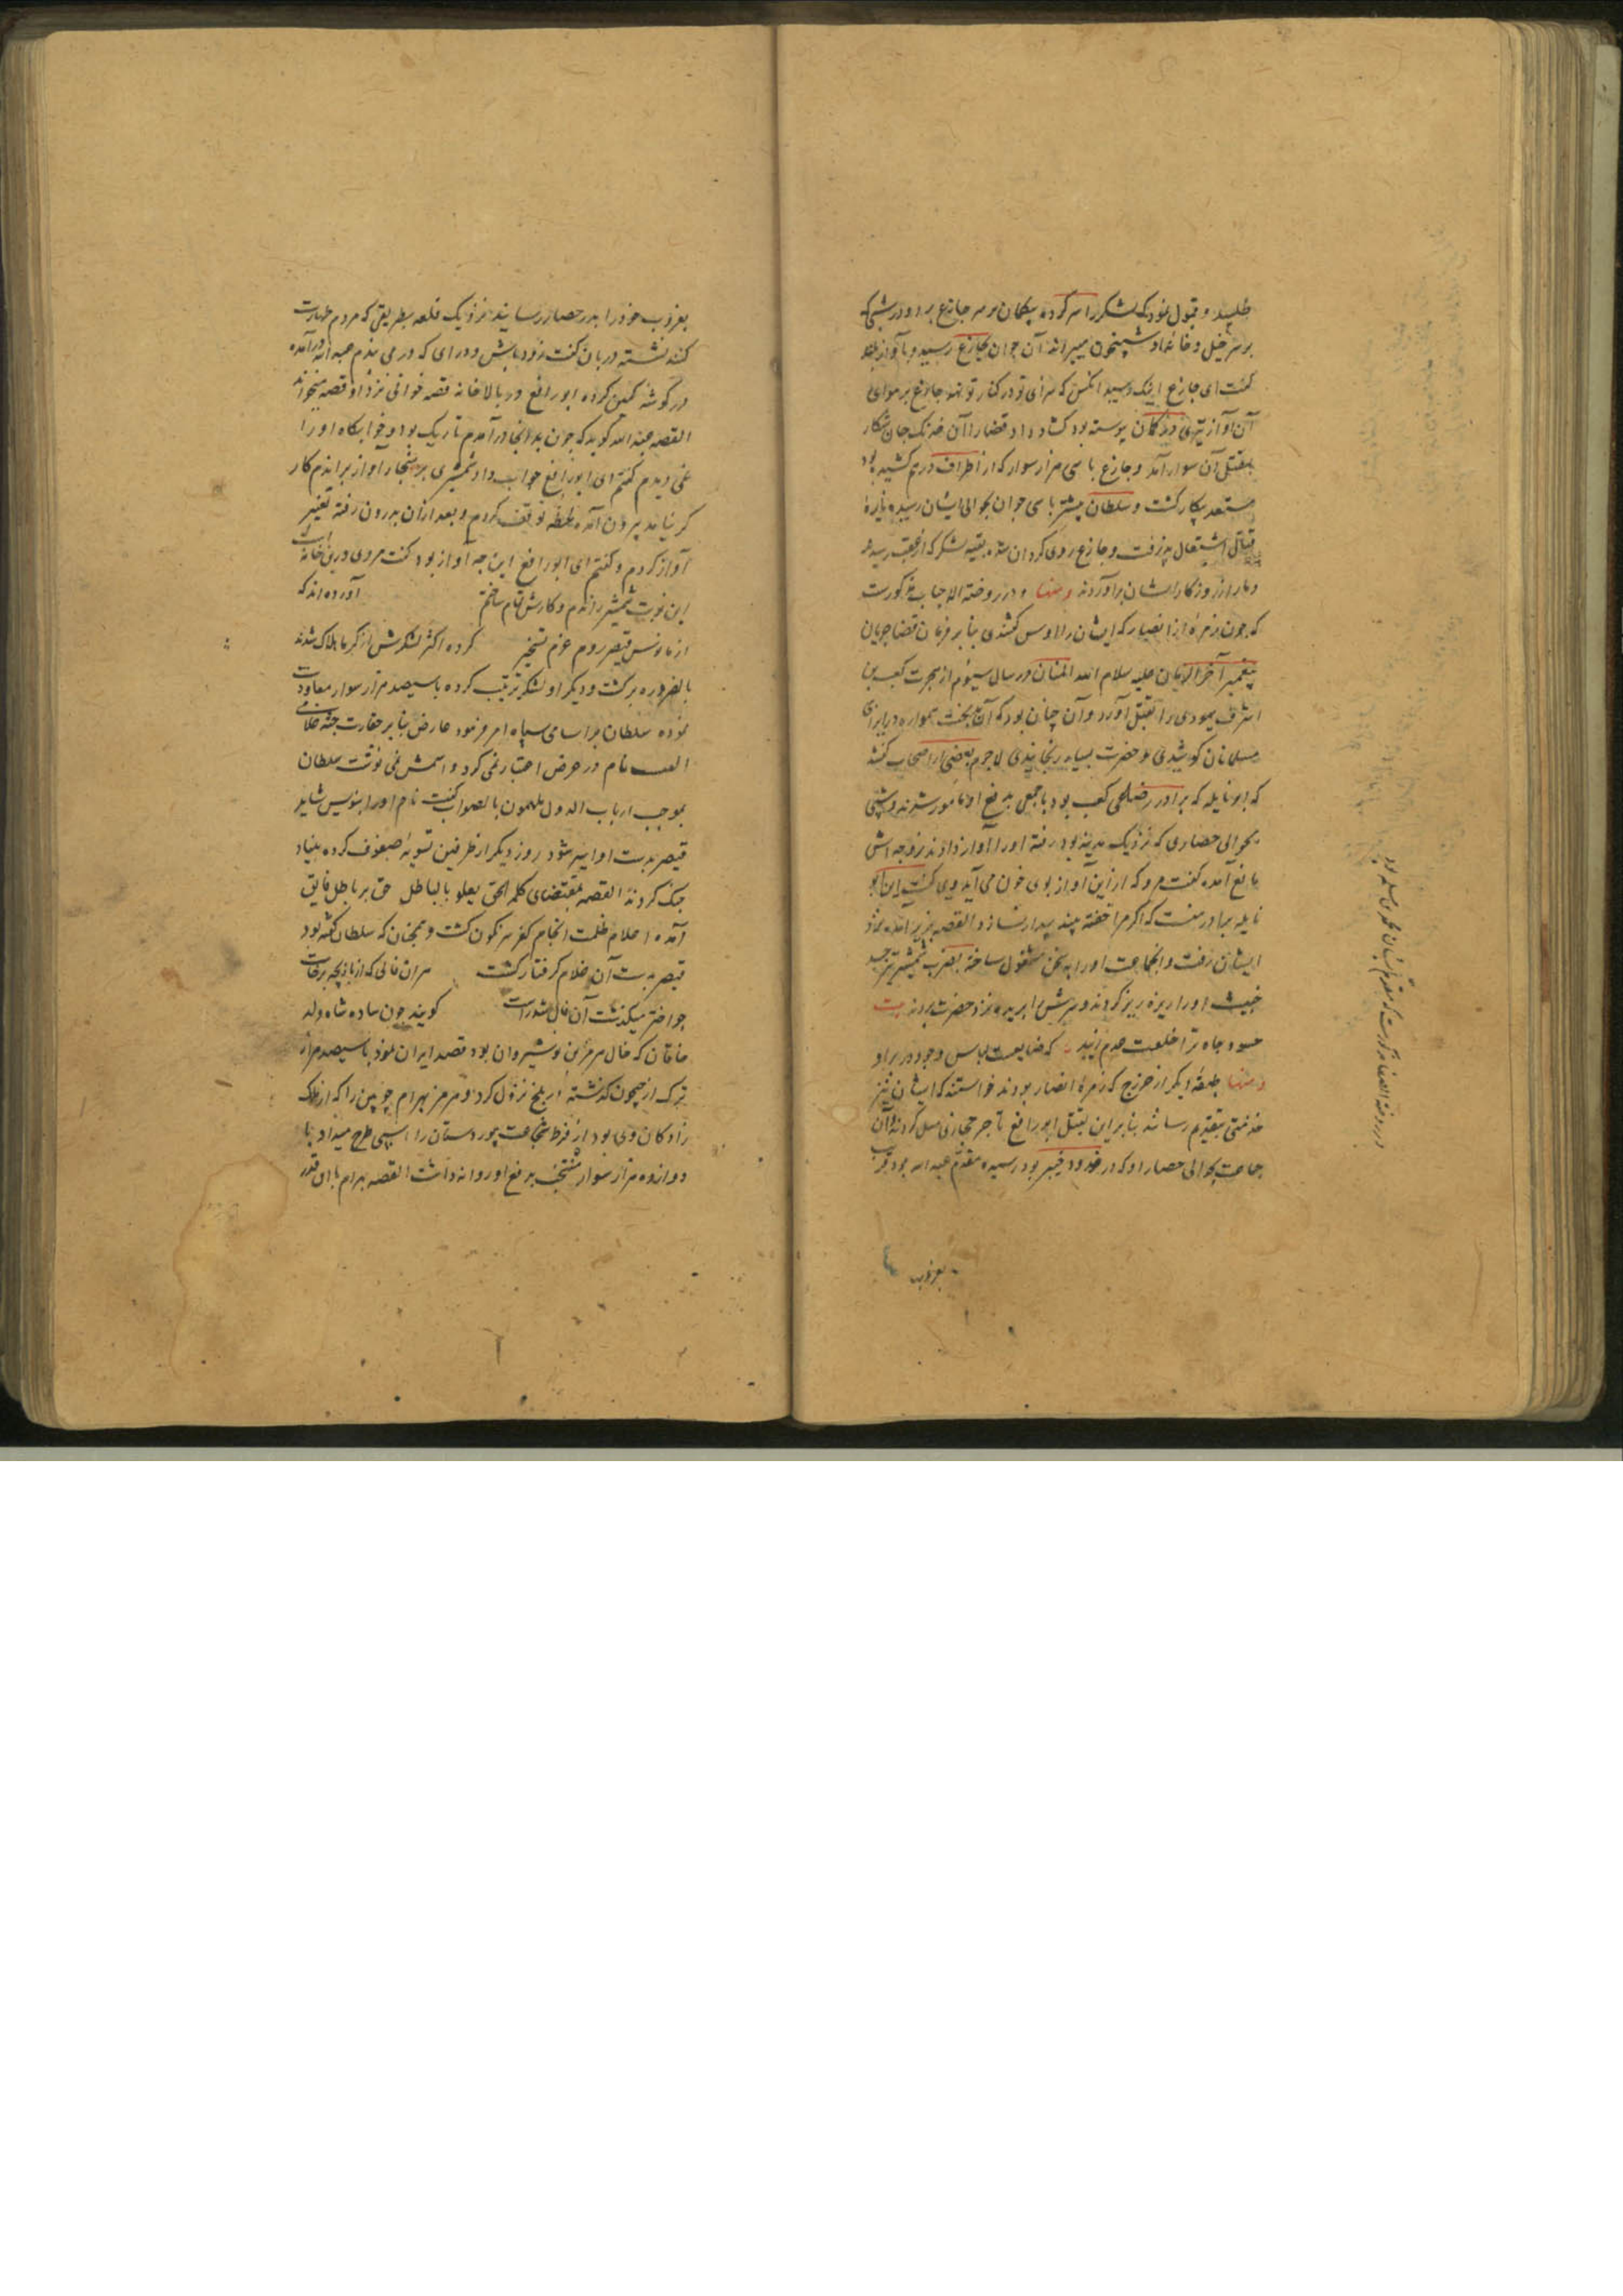 طلبید و قبول نمود که لشکر را سر کرده بیکمان بر سر جازغ برد و در شبی که
بر سر خیل و خانمانه شبیخون میبرد آن جوان بجازغ رسید و بآواز بلند
گفت ای جازغ اینک رسید آنکس که سزای تو در کنار تو نهد جازغ بر هوای
آن آواز تیری در کمان پیوسته بود گشاد داد قضا را آن خدنک جان شکار
بمقتل آن سوار آمد و جازغ با سی هزار سوار که از اطراف درهم کشیده بود
مستعد پیکار گشت و سلطان پیشتر با سی جوان بحوالی ایشان رسیده نایرهٔ
قتال اشتعال پذرفت و جازغ روی کردان شده بقیه لشکر که از عقب رسیدند
دمار از روزگار ایشان برآوردند ومنها در روضة الاحباب مذکورست
که چون زمرهٔ از انصار که ایشان را اوس گفتندی بنابر فرمان قضا جریان
پیغمبر آخر الزمان علیه سلام الله المنان در سال سیوم از هجرت کعب بن
اشرف یهودی را بقتل آورد و آن چنان بود که آن بدبخت همواره در ایذای
مسلمانان کوشیدی و حضرت بسیار رنجانیدی لاجرم بعضی از اصحاب گفتند
که ابو نایله که برادر رضاعی کعب بود با جمعی بدفع او مامور شدند و شبی
بحوالی حصاری که نزدیک مدینه بود رفته او را آواز دادند زوجه اش
مانع آمده گفت مرو که از این آواز بوی خون می آید وی گفت این ابو
نایله برادر منست که اگر مرا خفته بیند بیدار نسازد القصه بزیر آمده نزد
ایشان رفت و آنجماعت او را به سخن مشغول ساخته بضرب شمشیر تیز جسد
خبیث او را ریزه ریز کردند و سرش را بریده نزد حضرت بردند بیت
حسود جاه ترا خلعت عدم زیبد که ضایعست لباس وجود در بر او
ومنها طبقهٔ دیگر از خزرج که زمرهٔ انصار بودند خواستند که ایشان نیز
خدمتی بتقدیم رسانند بنابراین بقتل ابو رافع تاجر حجازی میل کردند و آن
جماعت بحوالی حصار او که در حدود خیبر بود رسیده مقدم عبد الله بود قریب
بغروب
در روضة الصفا مذکورست که مقدم ایشان محمد بن مسلمه بود
بغروب خود را بدر حصار رسانید نزدیک قلعه بطریقی که مردم طهارت
کنند نشسته دربان گفت زود باش و درای که در می بندم عبد الله درآمده
در گوشه کمین کرده ابو رافع در بالاخانه قصه خوانی نزد او قصه میخواند
القصه عبد الله گوید که چون بدانجا درآمدم تاریک بود و خوابگاه او را
نمی دیدم گفتم ای ابو رافع جواب داد شمشیری بر هنجار آواز براندم کار
گر نیامد بیرون آمده لحظه توقف کردم و بعد از آن بدرون رفته تغییر
آواز کردم و گفتم ای ابو رافع این چه آواز بود گفت مردی درین خانه است
این نوبت شمشیر راندم و کارش تمام ساختم آورده اند که
ارمانوس قیصر روم عزم تسخیر کرده اکثر لشکرش از گرما هلاک شدند
بالضروره برگشت و دیگر او لشکر ترتیب کرده با سیصد هزار سوار معاودت
نموده سلطان بر اسامی سپاه امر فرمود عارض بنابر حقارت جثه غلامی
نام در عرض اعتبار نمی کرد و اسمش نمی نوشت سلطان
بموجب ارباب الدول ملهمون بالصواب گفت نام او را بنویس شاید
قیصر بدست او اسیر شود روز دیگر از طرفین تسویهٔ صفوف کرده بنیاد
جنگ کردند القصه بمقتضای کلمه الحق یعلو بالباطل حق بر باطل فایق
آمده اعلام ظلمت انجام کفر سرنگون گشت و همچنان که سلطان گفته بود
قیصر بدست آن غلام گرفتار گشت هر آن فالی که از بازیچه برخاست
چو اختر میگذشت آن فال شد راست گویند چون ساده شاه ولد
خاقان که خال هرمز بن نوشیروان بود قصد ایران نمود با سیصد هزار
ترک از جیحون گذشته بر بلخ نزول کرد و هرمز بهرام چوبین را که از ملک
زادگان وی بود از فرط شجاعت پور دستان را اسپی طرح میداد با
دوازده هزار سوار منتخب بدفع او روانه داشت القصه بهرام با آن قدر